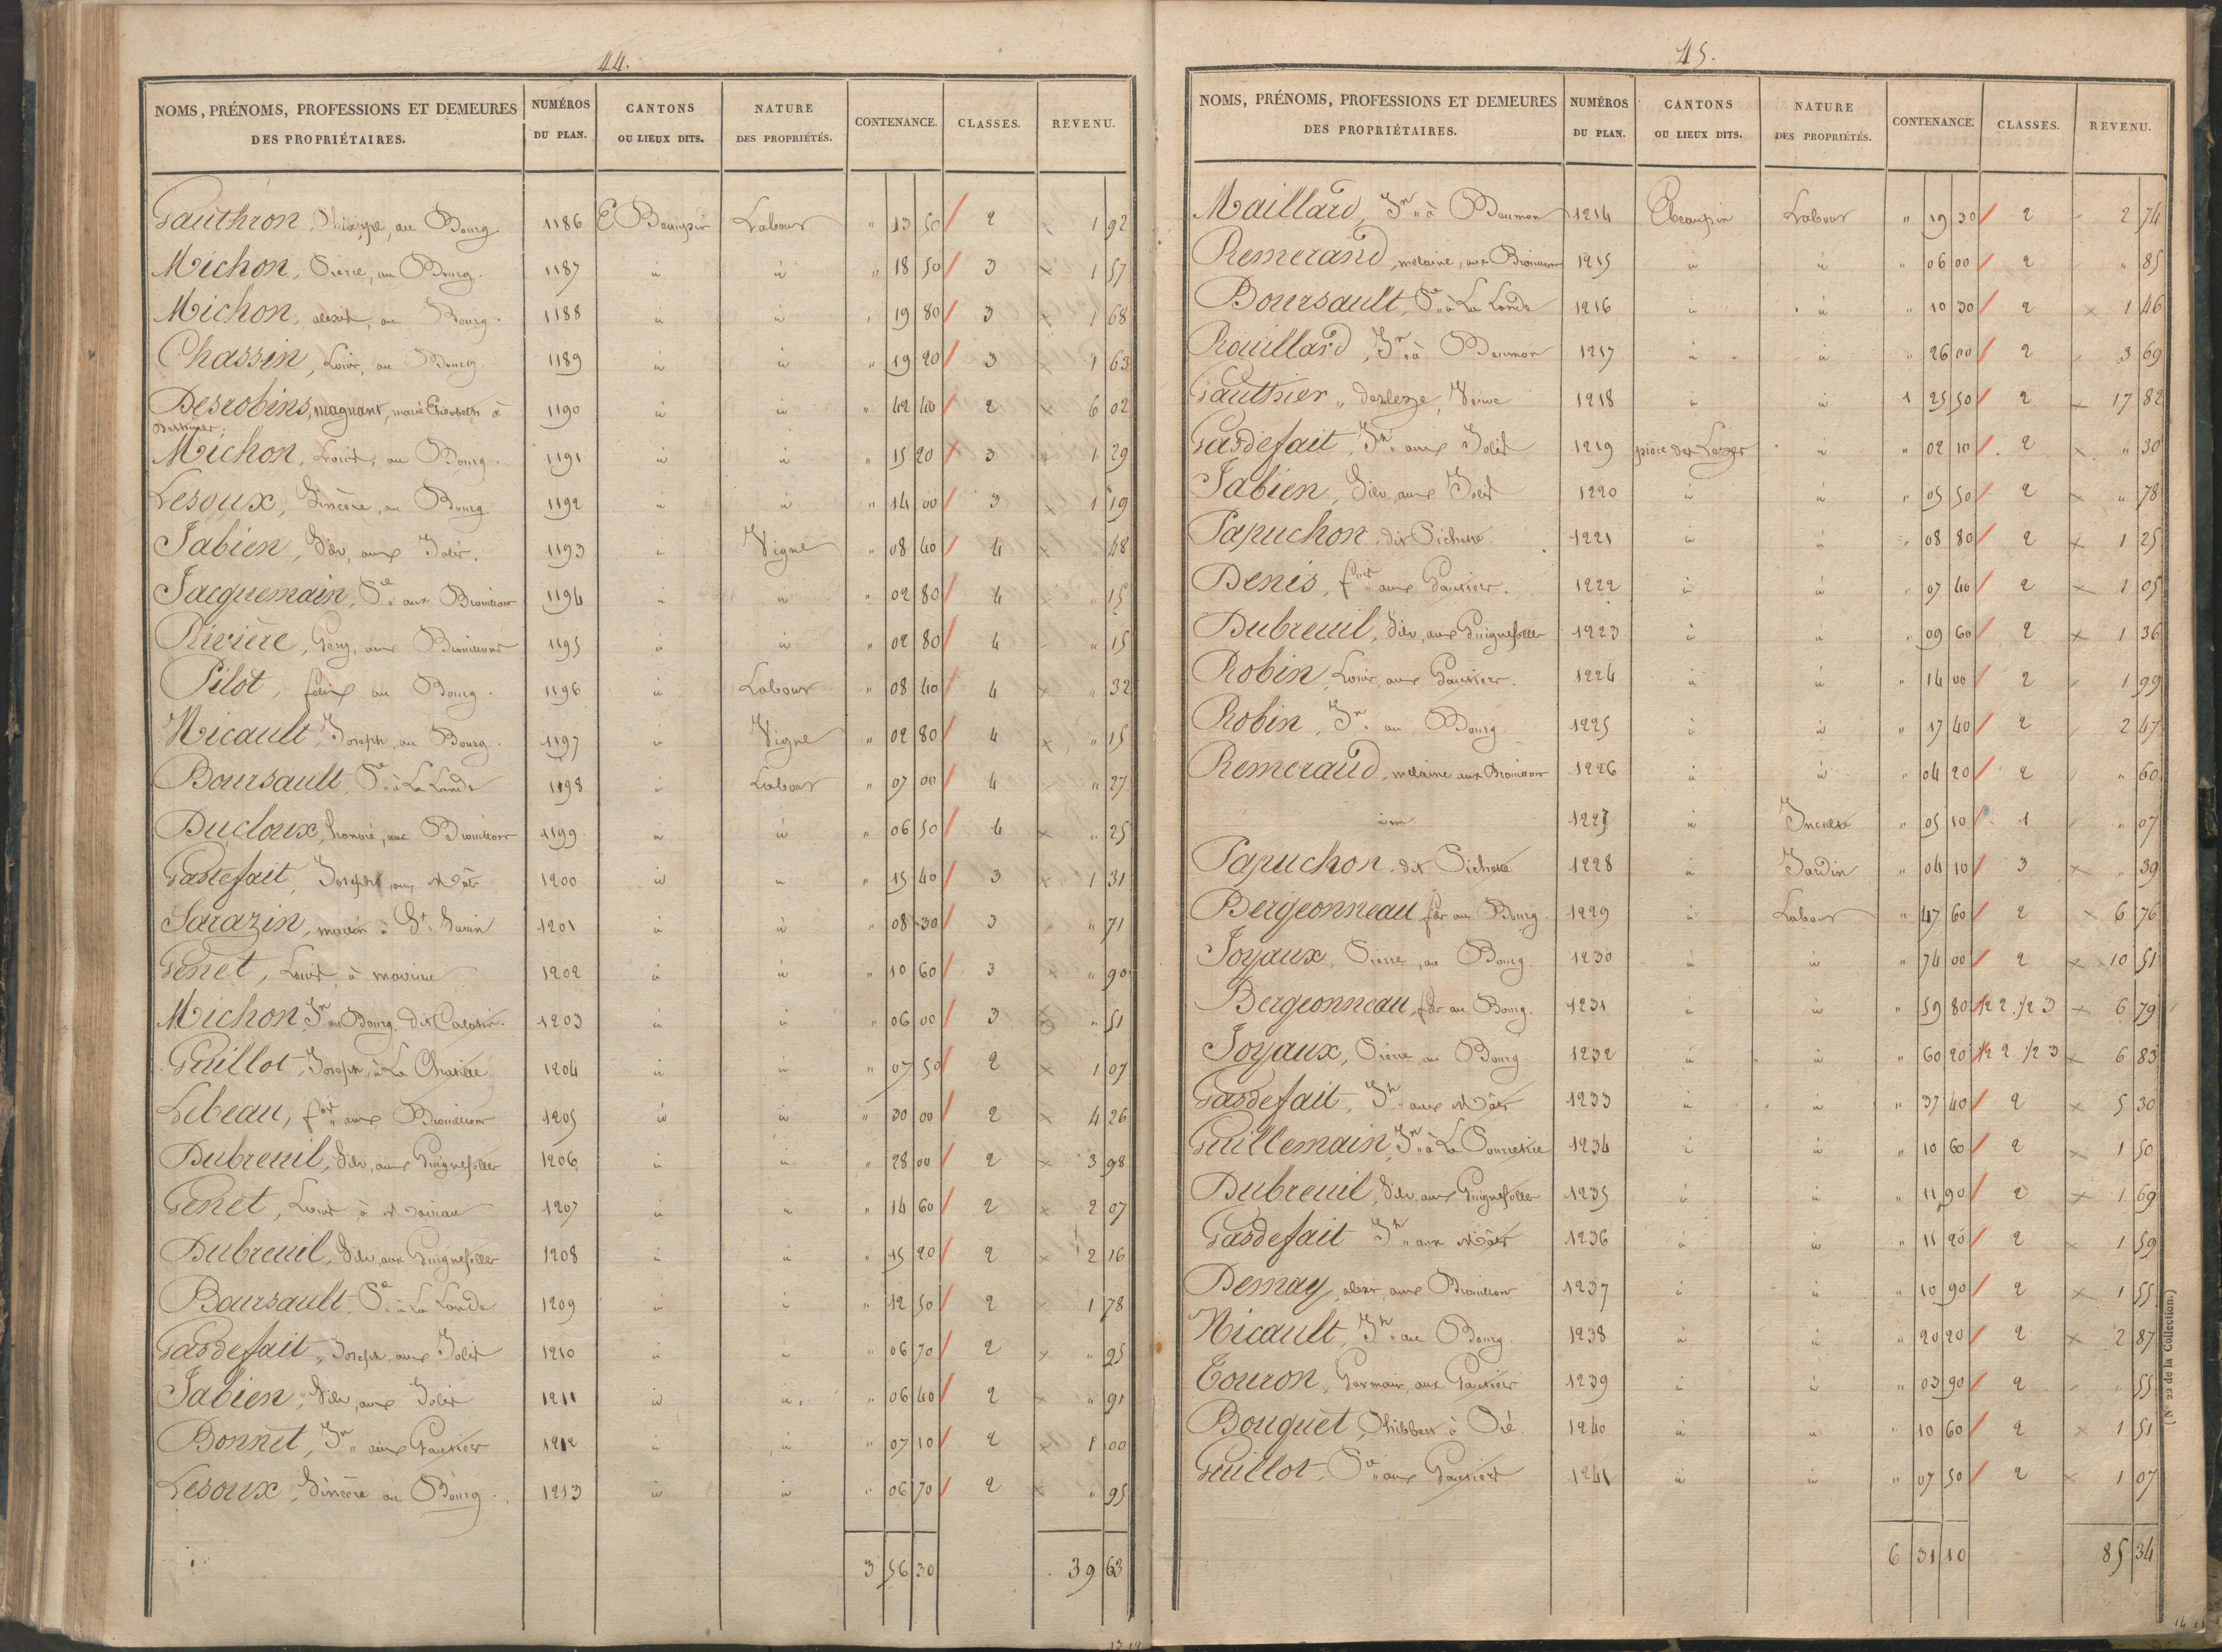 44.
NOMS, PRÉNOMS, PROFESSIONS ET DEMEURES DES PROPRIÉTAIRES. NUMÉROS DU PLAN. CANTONS OU LIEUX DITS. NATURE DES PROPRIÉTÉS. CONTENANCE. CLASSES. REVENU.
Gauthron, au Bourg 1186 Labour " 13 50 2 1 92
Michon, Pierre, au Bourg. 1187 id id " 18 50 3 1 57
Michon, alexis, au Bourg. 1188 id id " 19 80 3 1 68
Chassin, Louis, au Bourg 1189 id id " 19 20 3 1 63
Desrobins, magnant, marie Elisabeth à 1190 id id " 42 40 2 6 02
Michon, Louis, au Bourg. 1191 id id " 15 20 3 1 29
Lesoux, Sincère, au Bourg. 1192 id id " 14 00 3 1 19
Fabien, Silv, aux Jolis. 1193 id Vigne " 08 40 4 " 48
Jacquemain, aux 1194 id id " 02 80 4 " 15
Rivière, aux 1195 id id " 02 80 4 " 15
Pilot, félix au Bourg. 1196 id Labour " 08 40 4 " 32
Nicault, Joseph, au Bourg. 1197 id Vigne " 02 80 4 " 15
Boursault, à La Lande 1198 id Labour " 07 00 4 " 27
Ducloux, honoré, aux 1199 id id " 06 50 4 " 25
Gasdefait, Joseph aux 1200 id id " 15 40 3 1 31
Sarazin, martin à St. Savin 1201 id id " 08 30 3 " 71
Genet, Louis, à 1202 id id " 10 60 3 " 90
Michon Jn au Bourg. dit 1203 id id " 06 00 3 " 51
Guillot, Joseph, à La 1204 id id " 07 50 2 1 07
Lebeau, aux 1205 id id " 30 00 2 4 26
Dubreuil, Silv, aux Guignefolles 1206 id id " 28 00 2 3 98
Genet, Louis à 1207 id id " 14 60 2 2 07
Dubreuil, Silv, aux Guignefolles 1208 id id " 15 20 2 2 16
Boursault, à La Lande 1209 id id " 12 50 2 1 78
Gasdefait, Joseph, aux Jolis 1210 id id " 06 70 2 " 95
Fabien, Silv, aux Jolis 1211 id id " 06 40 2 " 91
Bonnet, Jn aux Gautiers 1212 id id " 07 10 2 1 00
Lesoux, Sincère au Bourg. 1213 id id " 06 70 2 " 95
3 56 30 39 63
45.
NOMS, PRÉNOMS, PROFESSIONS ET DEMEURES DES PROPRIÉTAIRES. NUMÉROS DU PLAN. CANTONS OU LIEUX DITS. NATURE DES PROPRIÉTÉS. CONTENANCE. CLASSES. REVENU.
Maillard, Jn à Beaumon 1214 Labour " 19 30 2 2 74
Remerand, melaine, aux 1215 id id " 06 00 2 " 85
Boursault, à La Lande 1216 id id " 10 30 2 1 46
Rouillard, Jn à Beaumon 1217 id id " 26 00 2 3 69
Gauthier, Veuve 1218 id id 1 25 50 2 17 82
Gasdefait, Jh aux Jolis 1219 pièce des id " 02 10 2 " 30
Fabien, Silv, aux Jolis 1220 id id " 05 50 2 " 78
Papuchon dit 1221 id id " 08 80 2 1 25
Denis, aux Gautiers. 1222 id id " 07 40 2 1 05
Dubreuil, Silv, aux Guignefolles 1223 id id " 09 60 2 1 36
Robin, Louis, aux Gautiers. 1224 id id " 14 00 2 1 99
Robin, Jn au Bourg 1225 id id " 17 40 2 2 47
Remeraud, melaine aux 1226 id id " 04 20 2 " 60
idem 1227 id Inculte " 05 10 1 " 07
Papuchon, dit 1228 id Jardin " 04 10 3 " 39
Bergeonneau, au Bourg. 1229 id Labour " 47 60 2 6 76
Joyaux, Pierre, au Bourg. 1230 id id " 74 00 2 10 51
Bergeonneau, au Bourg. 1231 id id " 59 80 1/2 2. 1/2 3 6 79
Joyaux, Pierre, au Bourg. 1232 id id " 60 20 1/2 2. 1/2 3 6 83
Gasdefait, Jh aux 1233 id id " 37 40 2 5 30
Guillemain, Jn à La 1234 id id " 10 60 2 1 50
Dubreuil, Silv, aux Guignefolles 1235 id id " 11 90 2 1 69
Gasdefait Jh aux 1236 id id " 11 20 2 1 59
Demay, alexis, aux 1237 id id " 10 90 2 1 55
Nicault, Jh au Bourg. 1238 id id " 20 20 2 2 87
Touron, Germain, aux Gautiers 1239 id id " 03 90 2 " 55
Bouquet, à 1240 id id " 10 60 2 1 51
Guillot, aux Gautiers 1241 id id " 07 50 2 1 07
6 31 10 85 34
(N° 22 de la Collection.)